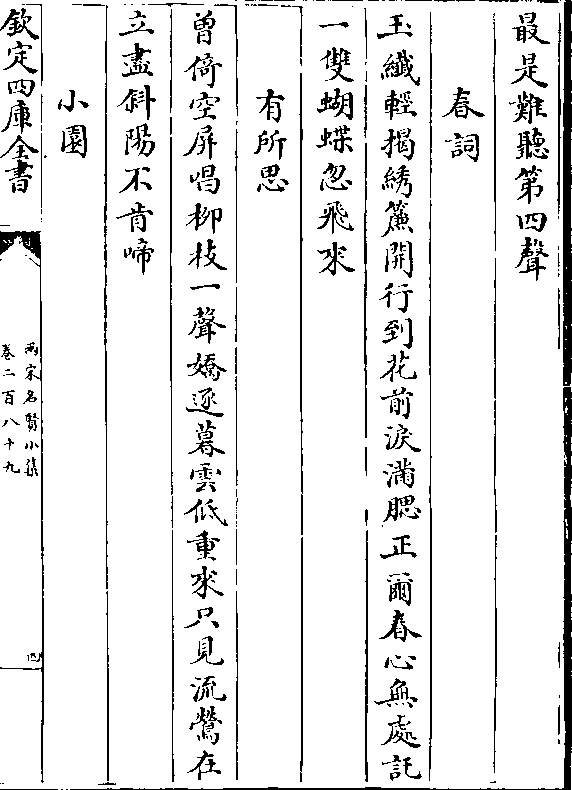 最是難聽第四聲
春詞
玉纖輕揭綉簾開行到花前淚滿腮正爾春心無處託
一雙蝴蝶忽飛來
有所思
曾倚空屏唱柳枝一聲嬌逐暮雲低重來只見流鶯在
立盡斜陽不肯啼
小園
欽定四庫全書
兩宋名賢小集
卷二百八十九
四